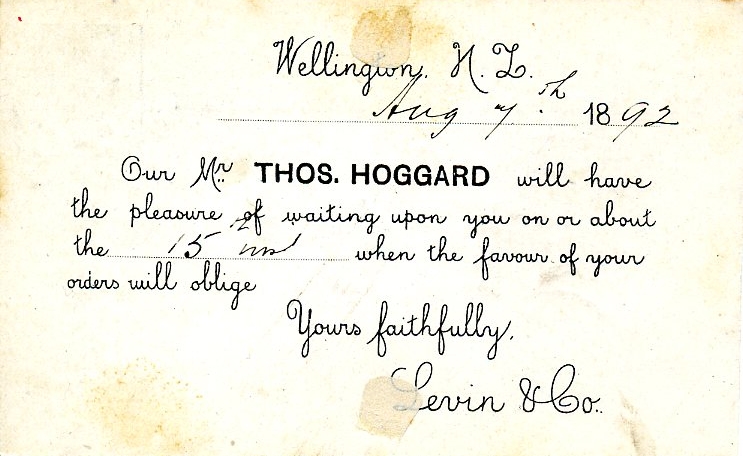 Wellington, N. Z.
Aug 7th 1892
Our Mr THOS. HOGGARD will have
the pleasure of waiting upon you on or about
the 15th inst when the favour of your
orders will oblige
Yours faithfully,
Levin & Co.